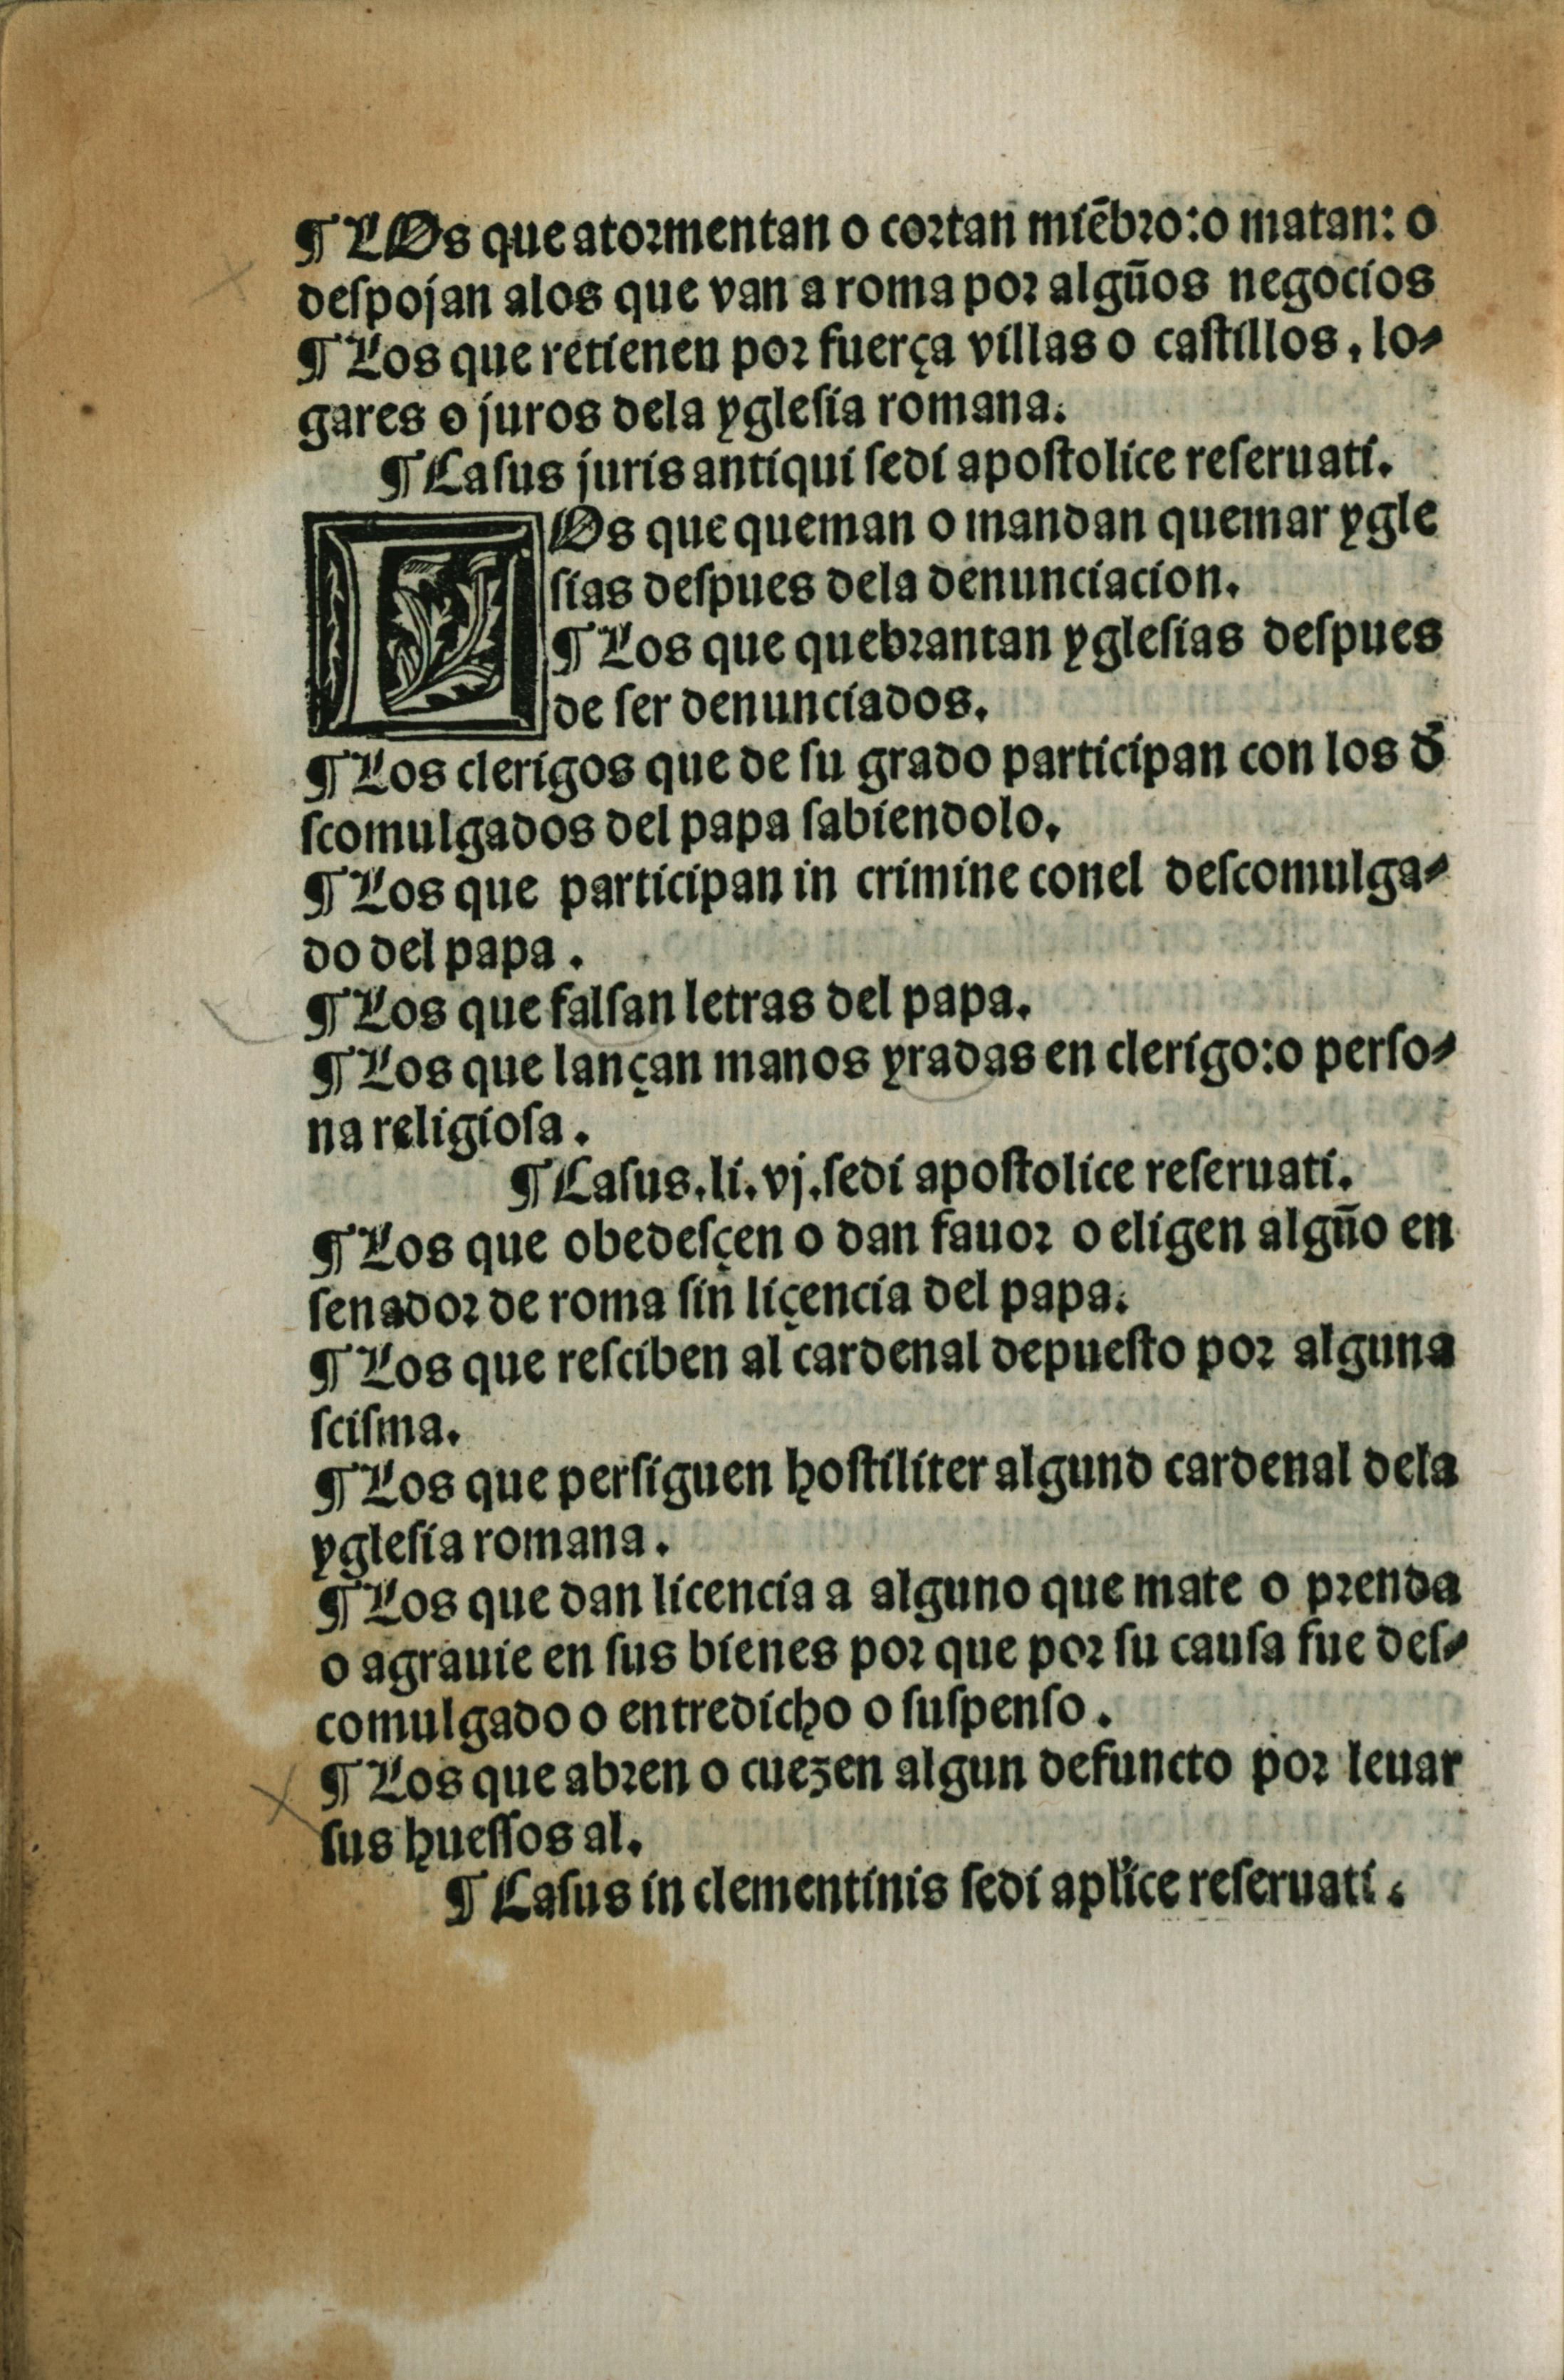 ¶ LOs que atormentan o cortan miēbro: o matan: o
deſpojan alos que van a roma por algūos negocios
¶ Los que retienen por fuerça villas o caſtillos, lo-
gares o juros dela ygleſia romana.
¶ Caſus juris antiqui ſedi apoſtolice reſeruati.
LOs que queman o mandan quemar ygle
ſias deſpues dela denunciacion.
¶ Los que quebrantan ygleſias deſpues
de ſer denunciados.
¶ Los clerigos que de ſu grado participan con los d̄
ſcomulgados del papa ſabiendolo.
¶ Los que participan in crimine conel deſcomulga-
do del papa.
¶ Los que falſan letras del papa.
¶ Los que lançan manos yradas en clerigo: o perſo-
na religioſa.
¶ Caſus. li. vj. ſedi apoſtolice reſeruati.
¶ Los que obedeſçen o dan fauor o eligen algūo en
ſenador de roma sin̄ liçencia del papa.
¶ Los que reſciben al cardenal depueſto por alguna
ſciſma.
¶ Los que perſiguen hoſtiliter algund cardenal dela
ygleſia romana.
¶ Los que dan licencia a alguno que mate o prenda
o agrauie en ſus bienes por que por ſu cauſa fue deſ-
comulgado o entredicho o ſuſpenſo.
¶ Los que abren o cuezen algun defuncto por leuar
ſus hueſſos al.
¶ Caſus in clementinis ſedi apl'ice reſeruati.